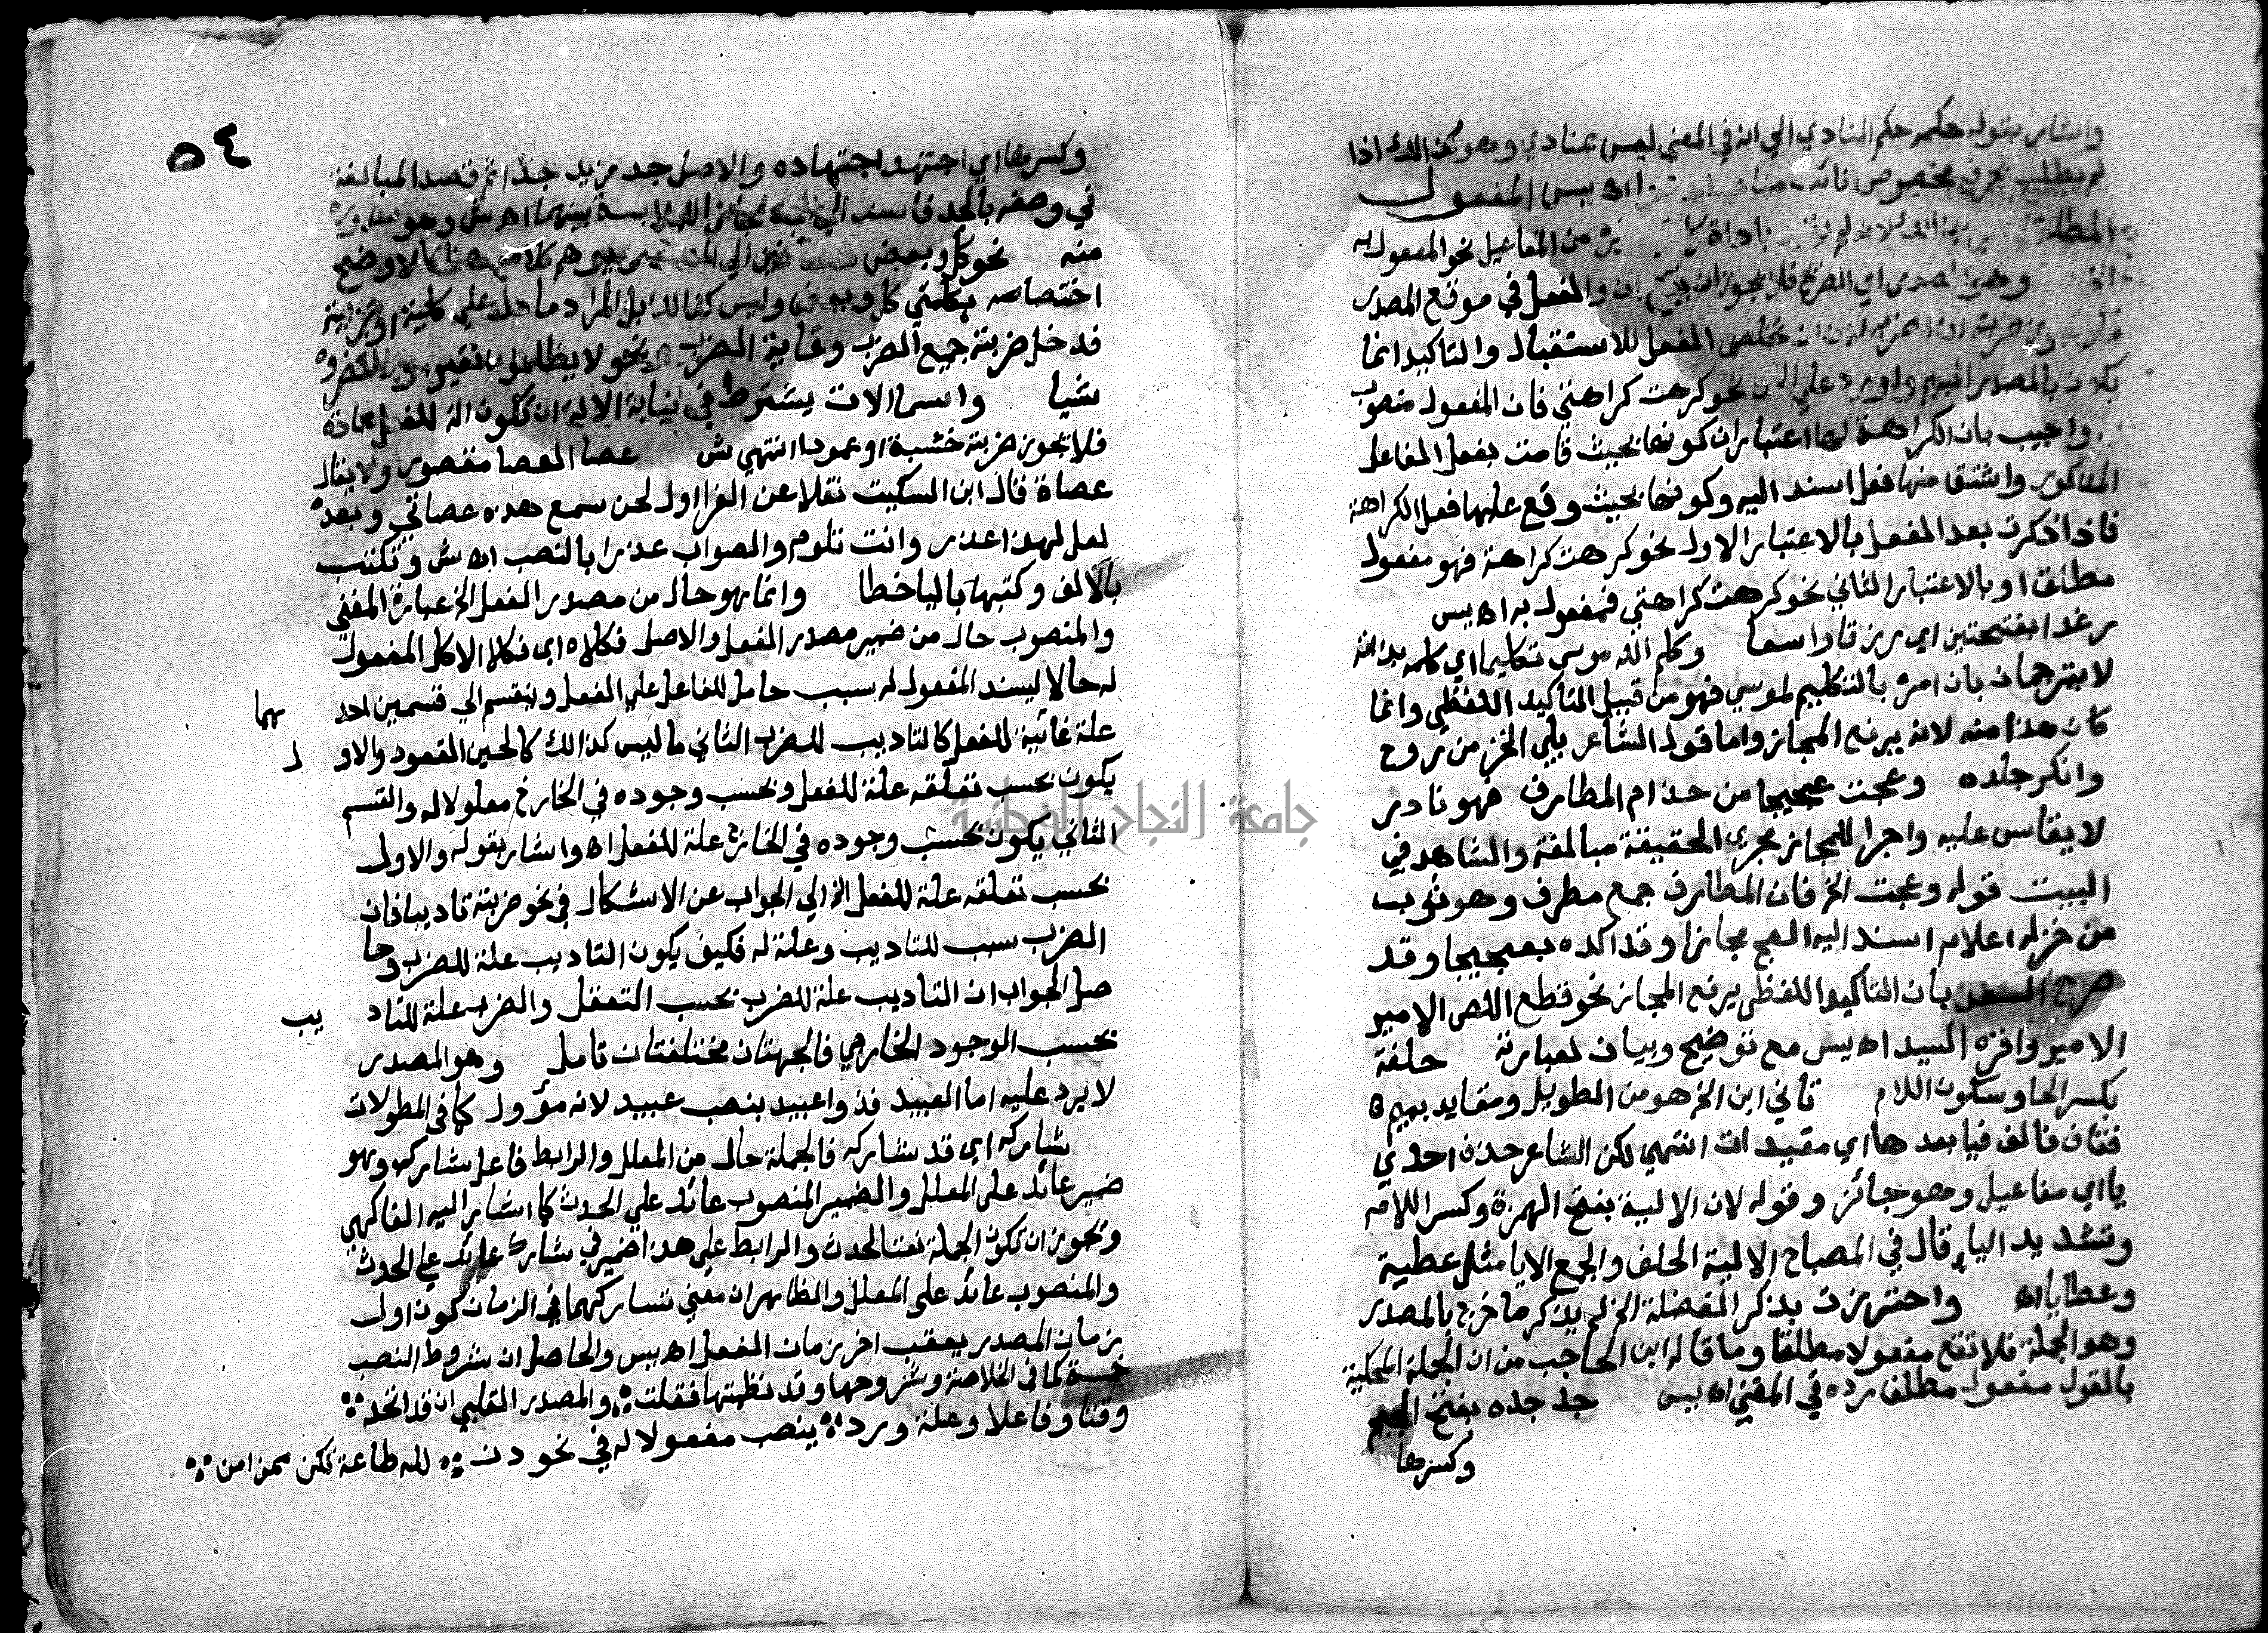 واشار بقوله حكمه حكم المنادي الي انه في المعني ليس بمنادي وهو كذالك اذا
لم يطلب بحرف مخصوص نائب مناب اه يس المفعول
المطلق لانه لم يقيد باداة من المفاعيل نحو المفعول به
وهو المصدر اي الصريح فلا يجوز ان يقع ان والفعل في موقع المصدر
ضربته ان اضربه لان ان تخلص الفعل للاستقبال والتاكيد انما
يكون بالمصدر المبهم واورد علي نحو كرهت كراهتي فان المفعول منصوب
واجيب بان الكراهة لها اعتباران كونها بحيث قامت بفعل الفاعل
المذكور واشتق منها فعل اسند اليه وكونها بحيث وقع عليها فعل الكراهة
فاذا ذكرت بعد الفعل بالاعتبار الاول نحو كرهت كراهة فهو مفعول
مطلق او بالاعتبار الثاني نحو كرهت كراهتي فمفعول به اه يس
رغدا بفتحتين اي رزقا واسعا وكلم الله موسي تكليما اي كلمه بذاته
لا بترجمان بان امره بالتكليم لموسي فهو من قبيل التاكيد اللفظي وانما
كان هذا منه لانه يرفع المجاز واما قول الشاعر بكي الخز من روح
وانكر جلده وعجت عجيجا من جذام المطارف فهو نادر
لا يقاس عليه واجرا للمجاز مجري الحقيقة مبالغة والشاهد في
البيت قوله وعجت الخ فان المطارف جمع مطرف وهو ثوب
من خز له اعلام اسند اليه العج مجازا وقد اكده بعجيجا وقد
صرح السعد بان التاكيد اللفظي يرفع المجاز نحو قطع اللص الامير
الامير واقره السيد اه يس مع توضيح وبيان لعبارته حلفة
بكسر الحا وسكون اللام تالي ابن الخ هو من الطويل ومقايد بميم
فقاف فالف فيا بعدها اي مقيدات انتهي لكن الشاعر حذف احدي
يااي مفاعيل وهو جائز وقوله لان الالية بفتح الهمزة وكسر اللام
وتشديد اليا قال في المصباح الالية الحلف والجمع الايا مثل عطية
وعطايا اه واحترزت بذكر الفضلة الخ لم يذكر ما خرج بالمصدر
وهو الجملة فلا تقع مفعولا مطلقا وما قاله ابن الحاجب من ان الجملة المحكية
بالقول مفعول مطلق رده في المغني اه يس جد جده بفتح الجيم
وكسرها
٥٤
وكسرها اي اجتهد اجتهاده والاصل جد مزيد جدا ثم قصد المبالغة
في وصفه بالجد فاسند اليه الملابسة بينهما اه ش وهو
منه نحو كل وبعض الي يوهم كلامه هنا كالاوضح
اختصاصه بكلمتي كل وبعض وليس كذالك بل المراد ما دل علي كلية او جزئية
فدخل ضربته جميع الضرب وغاية الضرب ونحو لا يظلمون نقيرا
شيا واسما الات يشترط في نيابة الالة ان تكون الة للفعل عادة
فلا يجوز ضربته خشبة او عمودا انتهي ش عصا العصا مقصور ولا يقال
عصاة قال ابن السكيت نقلا عن الفرا اول لحن سمع هذه عصاتي وبعده
لعل لهذا عذر وانت تلوم والصواب عذرا بالنصب اه ش وتكتب
بالالف وكتبها باليا خطا وانما هو حال من مصدر الفعل الخ عبارة المغني
والمنصوب حال من ضمير مصدر الفعل والاصل فكلاه اي فكلا الاكل المفعول
له حالا ليسند المفعول له سبب حامل للفاعل علي الفعل وينقسم الي قسمين احد هما
علة غائية للفعل كالتاديب للضرب الثاني ما ليس كذالك كالجبن للقعود والاو ل
يكون بحسب تعلقه علة للفعل وبحسب وجوده في الخارج معلولا له والقسم
الثاني يكون بحسب وجوده في الخارج علة للفعل اه واشار بقوله والاول
بحسب تعلقه علة للفعل الخ الي الجواب عن الاشكال في نحو ضربته تاديبا فان
الضرب سبب للتاديب وعلة له فكيف يكون التاديب علة للضرب وحا
صل الجواب ان التاديب علة للضرب بحسب التعقل والضرب علة للتاد يب
بحسب الوجود الخارجي فالجهتان مختلفتان تامل وهو المصدر
لا يرد عليه اما العبيد فذوا عبيد بنصب عبيد لانه مؤول كما في المطولات
شاركه اي قد شاركه فالجملة حال من المعلل والرابط فاعل شاركه وهو
ضمير عائد علي المعلل والضمير المنصوب عائد علي الحدث كما اشار اليه الفاكهي
وتجوز ان تكون الجملة نعتا لحدث والرابط علي هذا ضمير في شارك عائد علي الحدث
والمنصوب عائد علي المعلل والظاهر ان معني تشاركهما في الزمان كون اول
زمان المصدر يعقب اخر زمان الفعل اه يس والحاصل ان شروط النصب
خمسة كما في الخلاصة وشروحها وقد نظمتها فقلت والمصدر القلبي ان قد اتحد
وقتا وفاعلا وعلة ورد ينصب مفعولا له في نحو دن لله طاعة تكن ممن امن
جامعة النجاح الوطنية